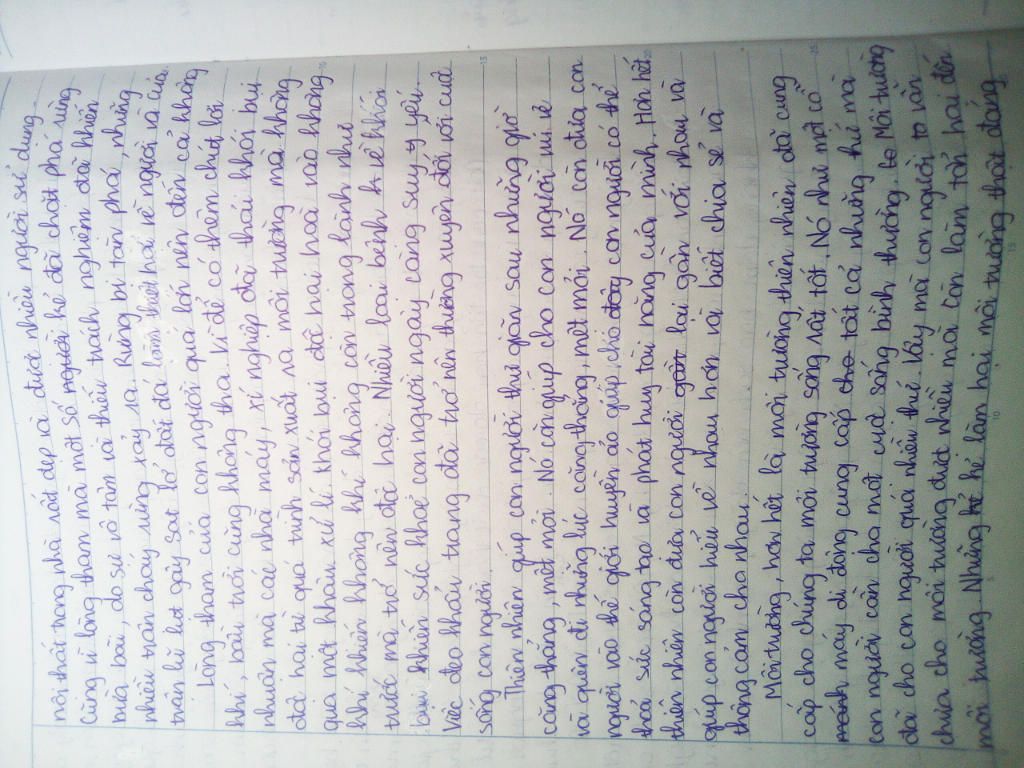 nội thất trong nhà rất đẹp và được nhiều người sử dụng.
Cũng vì lòng tham mà một số người kẻ đã chặt phá rừng
bừa bãi, do sự vô tâm và thiếu trách nghiệm đã khiến
nhiều trận cháy rừng xảy ra. Rừng bị tàn phá, những
trận lũ lụt gây sạt lở đất đá làm thiệt hại về người và của.
Lòng tham của con người quá lớn nên đến cả không
khí, bầu trời cũng không tha. Vì để có thêm chút lợi
nhuận mà các nhà máy, xí nghiệp đã thải khói bụi
độc hại từ quá trình sản xuất ra môi trường mà không
qua một khâu xử lí khói bụi độc hại hòa vào không
khí, khiến không khí không còn trong lành như
trước mà trở nên độc hại. Nhiều loại bệnh kì lề khói
bụi khiến sức khoẻ con người ngày càng suy y yếu.
Việc đeo khẩu trang đã trở nên thường xuyên đối với cuộc
sống con người.
Thiên nhiên giúp con người thư giãn sau những giờ
căng thẳng, mệt mỏi. Nó còn giúp cho con người vui vẻ
và quên đi những lúc căng thẳng, mệt mỏi. Nó còn đưa con
người vào thế giới huyền ảo giúp cho đây con người có thể
thoả sức sáng tạo và phát huy tài năng của mình. Hơn hết,
thiên nhiên còn đưa con người gần lại gần với nhau và
giúp con người hiểu về nhau hơn và biết chia sẻ và
thông cảm cho nhau.
Môi trường, hơn hết là môi trường thiên nhiên đã cung
cấp cho chúng ta môi trường sống rất tốt. Nó như một cỗ
mành máy di động cung cấp cho tất cả những thứ mà
con người cần cho một cuộc sống bình thường to Môi trường
đãi cho con người quá nhiều thế. Vậy mà con người to vẫn
chưa cho môi trường được nhiều mà còn làm tổn hại đến
môi trường. Những kẻ hề làm hại môi trường thật đáng